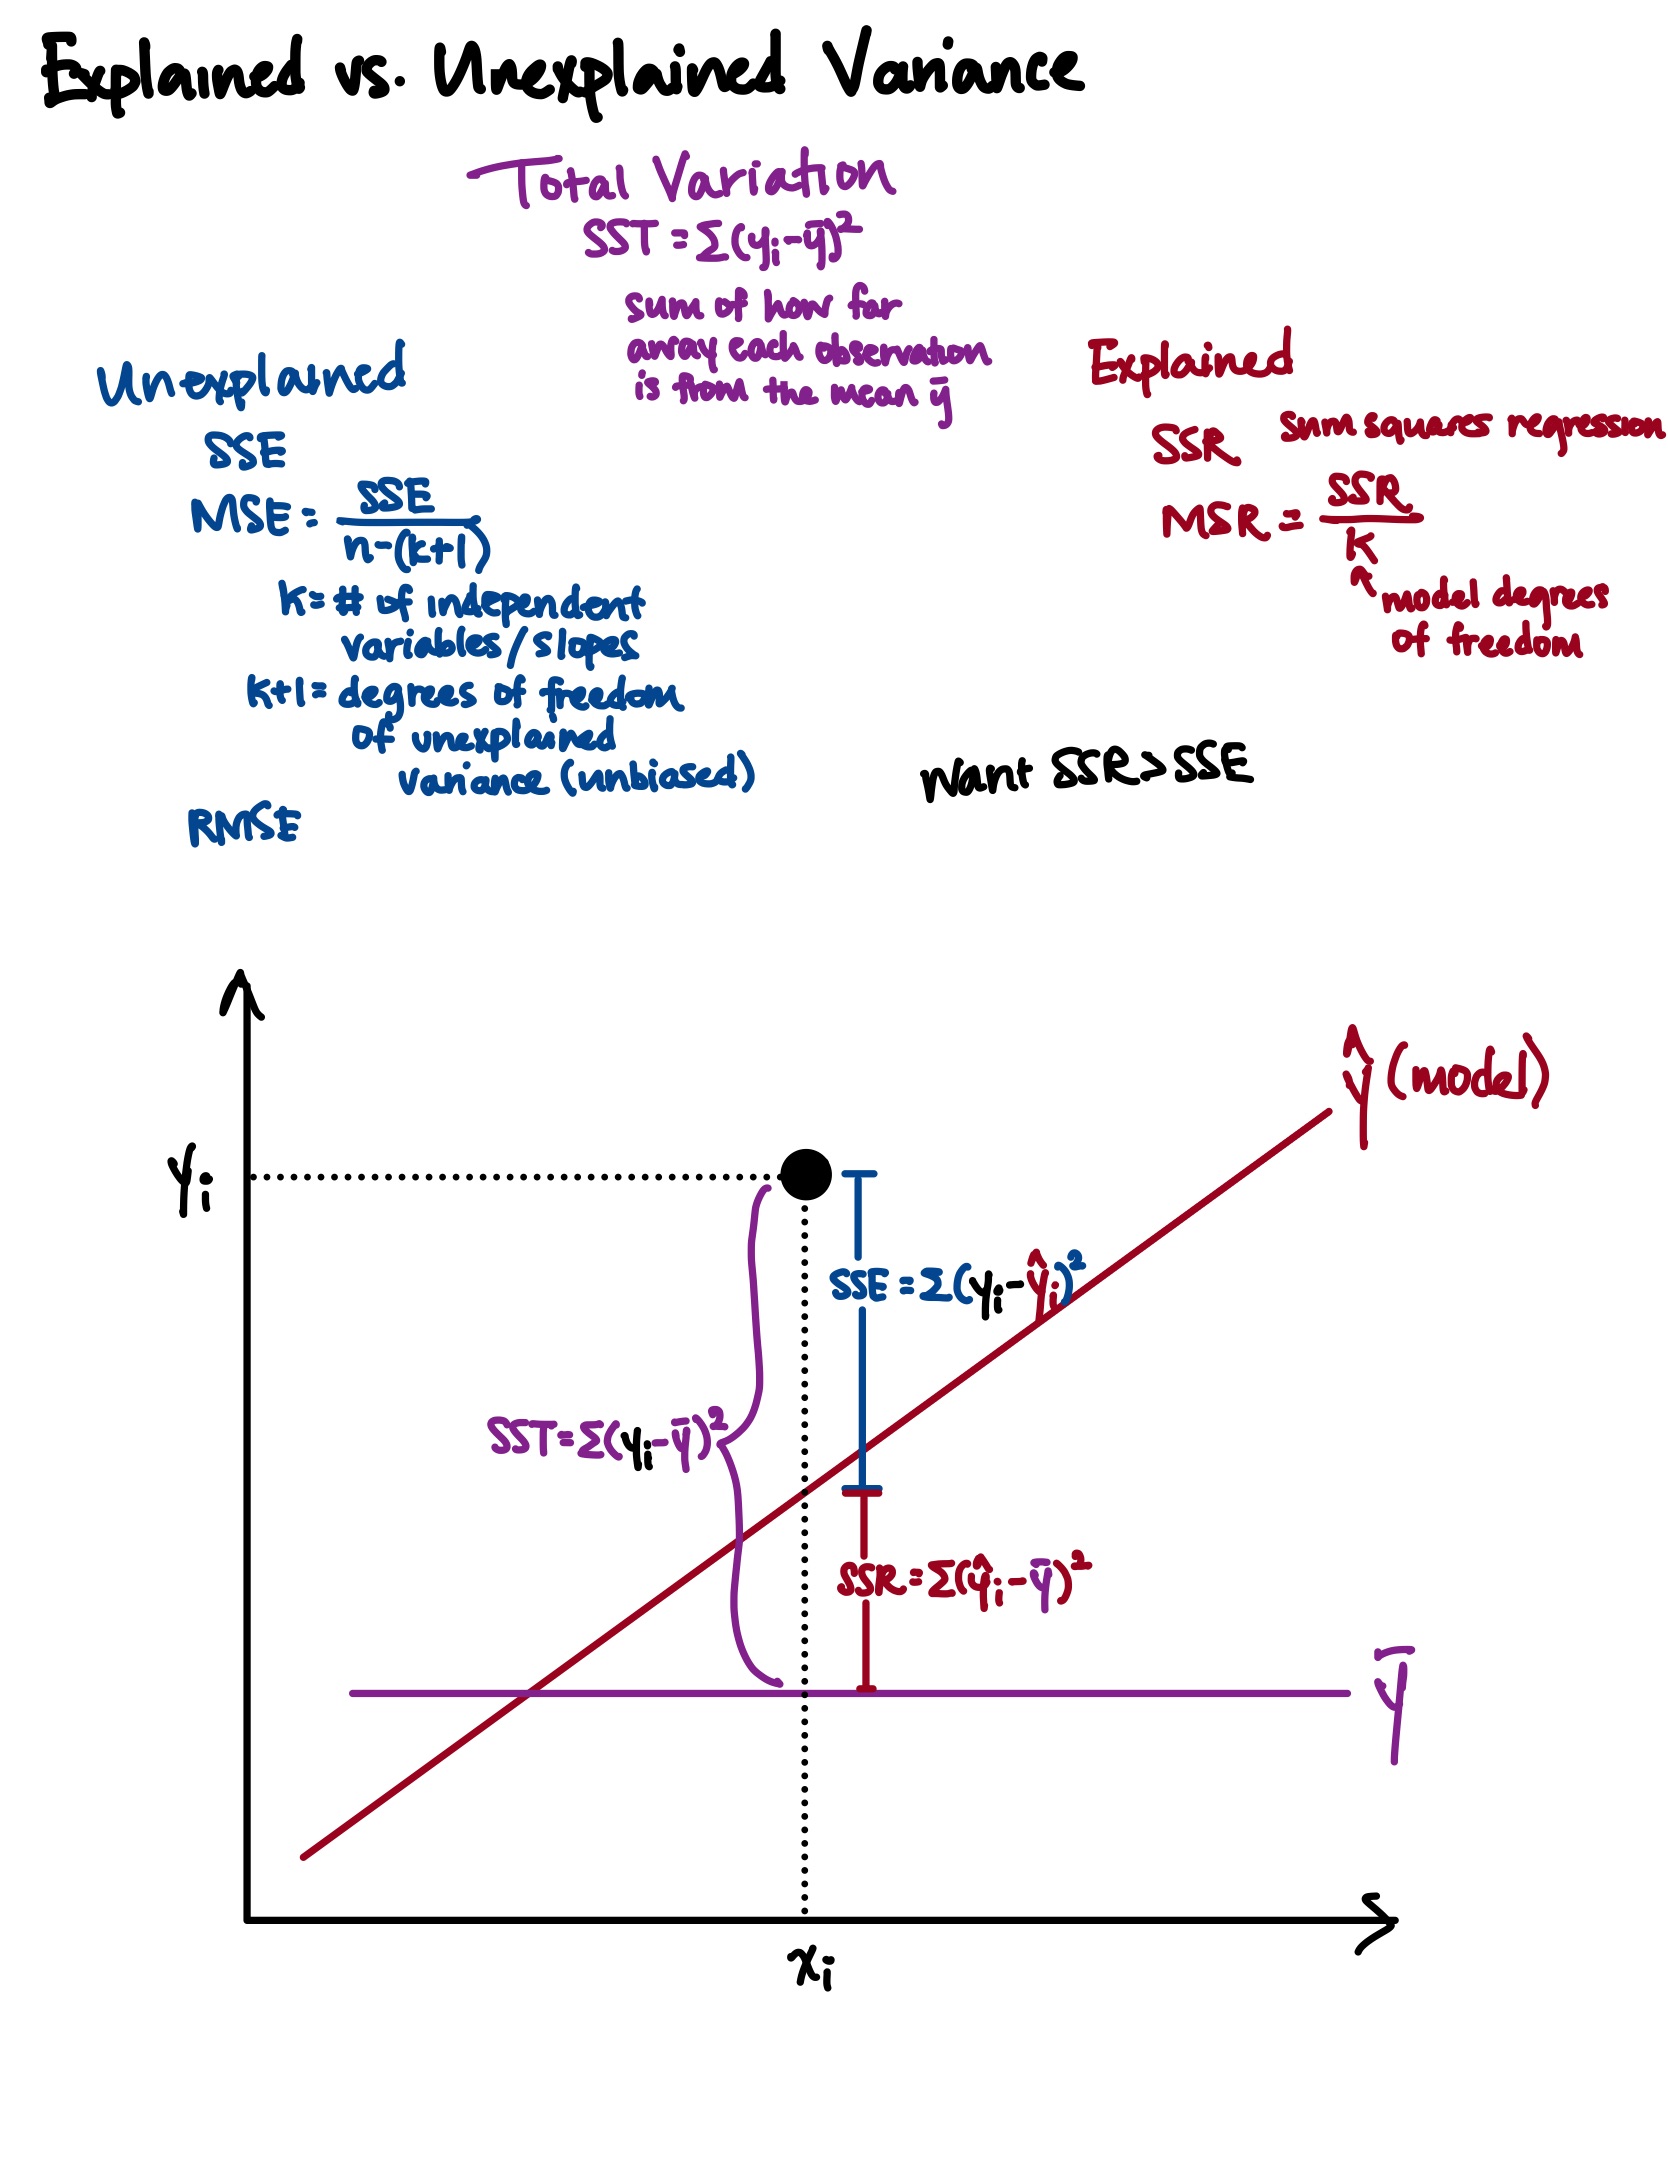 Explained vs. Unexplained Variance
Total Variation
SST = Σ(yi-ȳ)²
sum of how far
away each observation
is from the mean ȳ
Unexplained
SSE
MSE = SSE / n-(k+1)
k = # of independent
variables/slopes
k+1 = degrees of freedom
of unexplained
variance (unbiased)
RMSE
Explained
SSR sum squares regression
MSR = SSR / k
model degrees
of freedom
want SSR > SSE
ŷ (model)
yi
SSE = Σ(yi-ŷi)²
SST = Σ(yi-ȳ)²
SSR = Σ(ŷi-ȳ)²
ȳ
xi